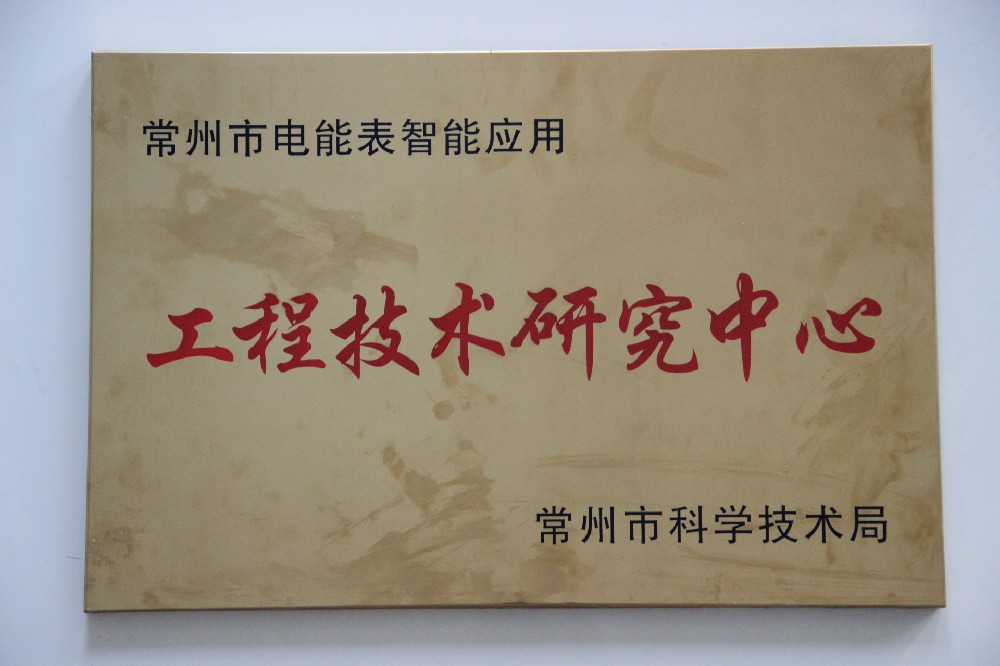 常州市电能表智能应用
工程技术研究中心
常州市科学技术局